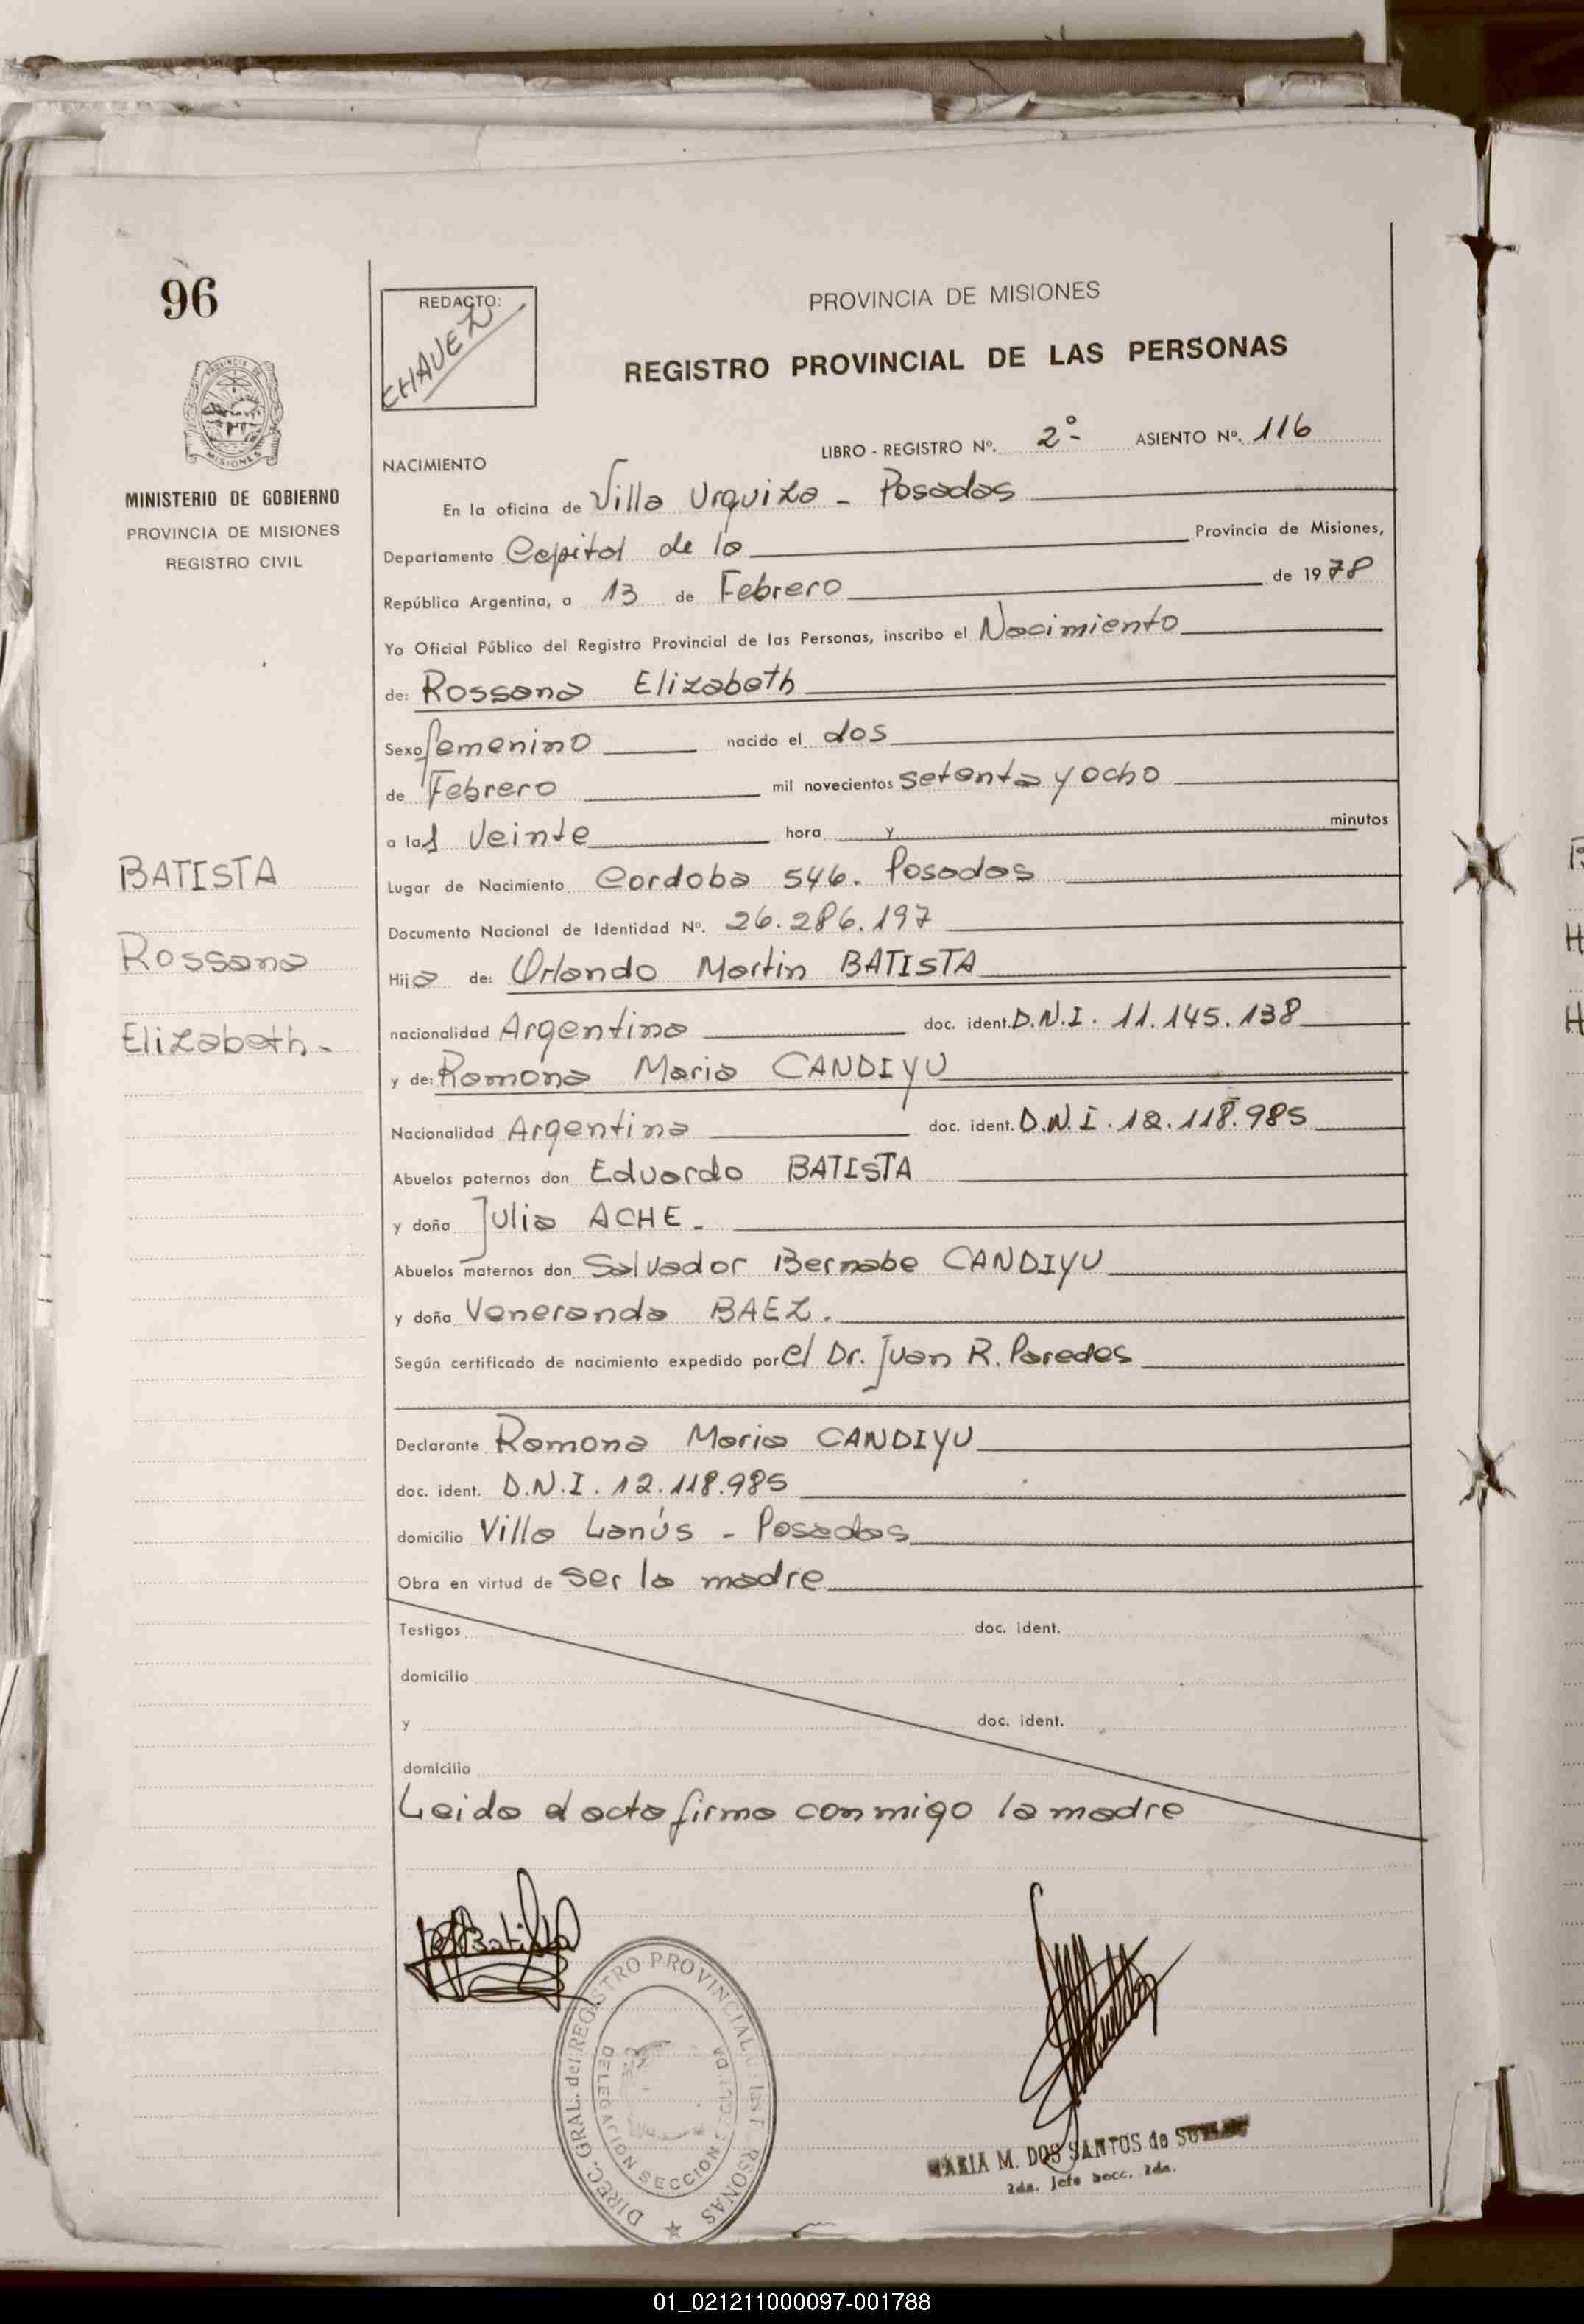 96
MINISTERIO DE GOBIERNO
PROVINCIA DE MISIONES
REGISTRO CIVIL
BATISTA
Rossana
Elizabeth-
REDACTO:
CHAVEZ
PROVINCIA DE MISIONES
REGISTRO PROVINCIAL DE LAS PERSONAS
LIBRO - REGISTRO Nº. 2º- ASIENTO Nº. 116
NACIMIENTO
En la oficina de Villa Urquiza - Posadas
Departamento Capital de la Provincia de Misiones,
República Argentina, a 13 de Febrero de 1978
Yo Oficial Público del Registro Provincial de las Personas, inscribo el Nacimiento
de: Rossana Elizabeth
Sexo femenino nacido el dos
de Febrero mil novecientos setenta y ocho
a las veinte hora y minutos
Lugar de Nacimiento Cordoba 546. Posadas
Documento Nacional de Identidad Nº. 26.286.197
Hija de: Orlando Martin BATISTA
nacionalidad Argentina doc. ident. D.N.I. 11.145.138
y de: Ramona Maria CANDIYU
Nacionalidad Argentina doc. ident. D.N.I. 12.118.985
Abuelos paternos don Eduardo BATISTA
y doña Julia ACHE.
Abuelos maternos don Salvador Bernabe CANDIYU
y doña Veneranda BAEZ.
Según certificado de nacimiento expedido por el Dr. Juan R. Paredes
Declarante Ramona Maria CANDIYU
doc. ident. D.N.I. 12.118.985
domicilio Villa Lanús - Posadas
Obra en virtud de ser la madre
Testigos doc. ident.
domicilio
y doc. ident.
domicilio
Leida el acta firma conmigo la madre
Batista
DIREC. GRAL. del REGISTRO PROVINCIAL
DELEGACION SECCION
MARIA M. DOS SANTOS de
2da. Jefe Secc. 2da.
01_021211000097-001788